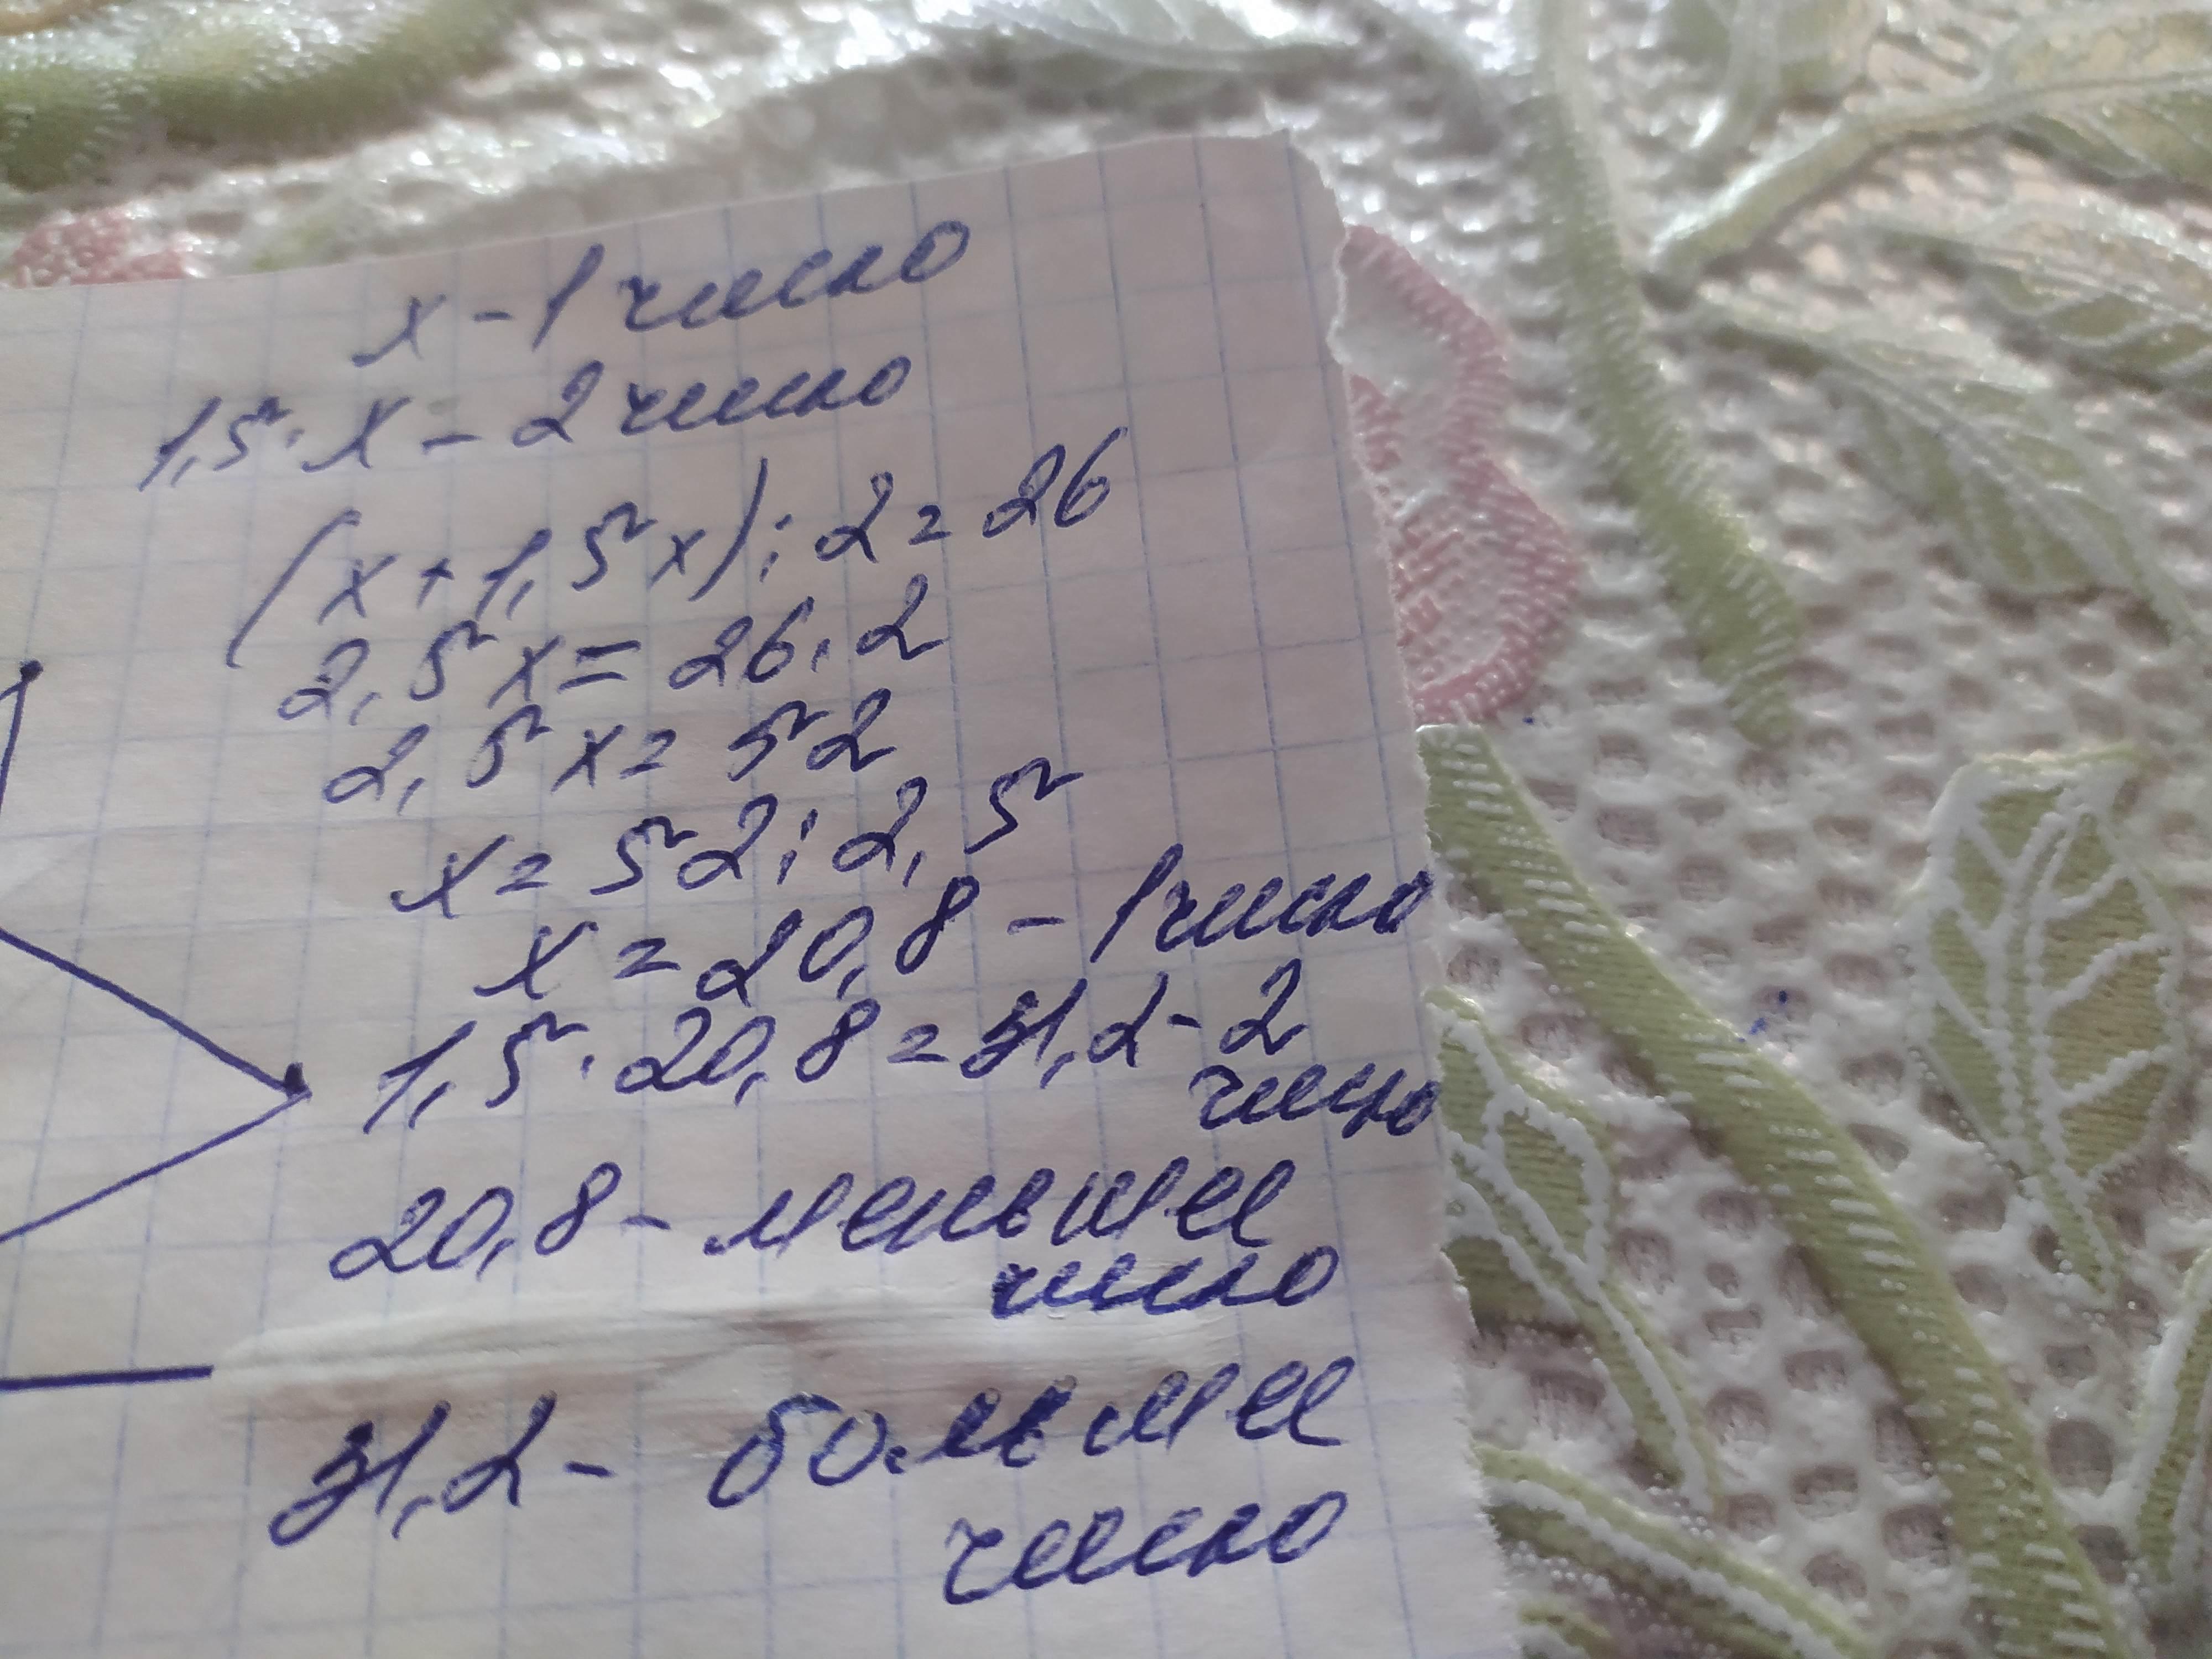 x - 1 число
1,5 · x = 2 число
(x + 1,5x) : 2 = 26
2,5x = 26 · 2
2,5x = 52
x = 52 : 2,5
x = 20,8 - 1 число
1,5 · 20,8 = 31,2 - 2
число
20,8 - меньшее
число
31,2 - большее
число